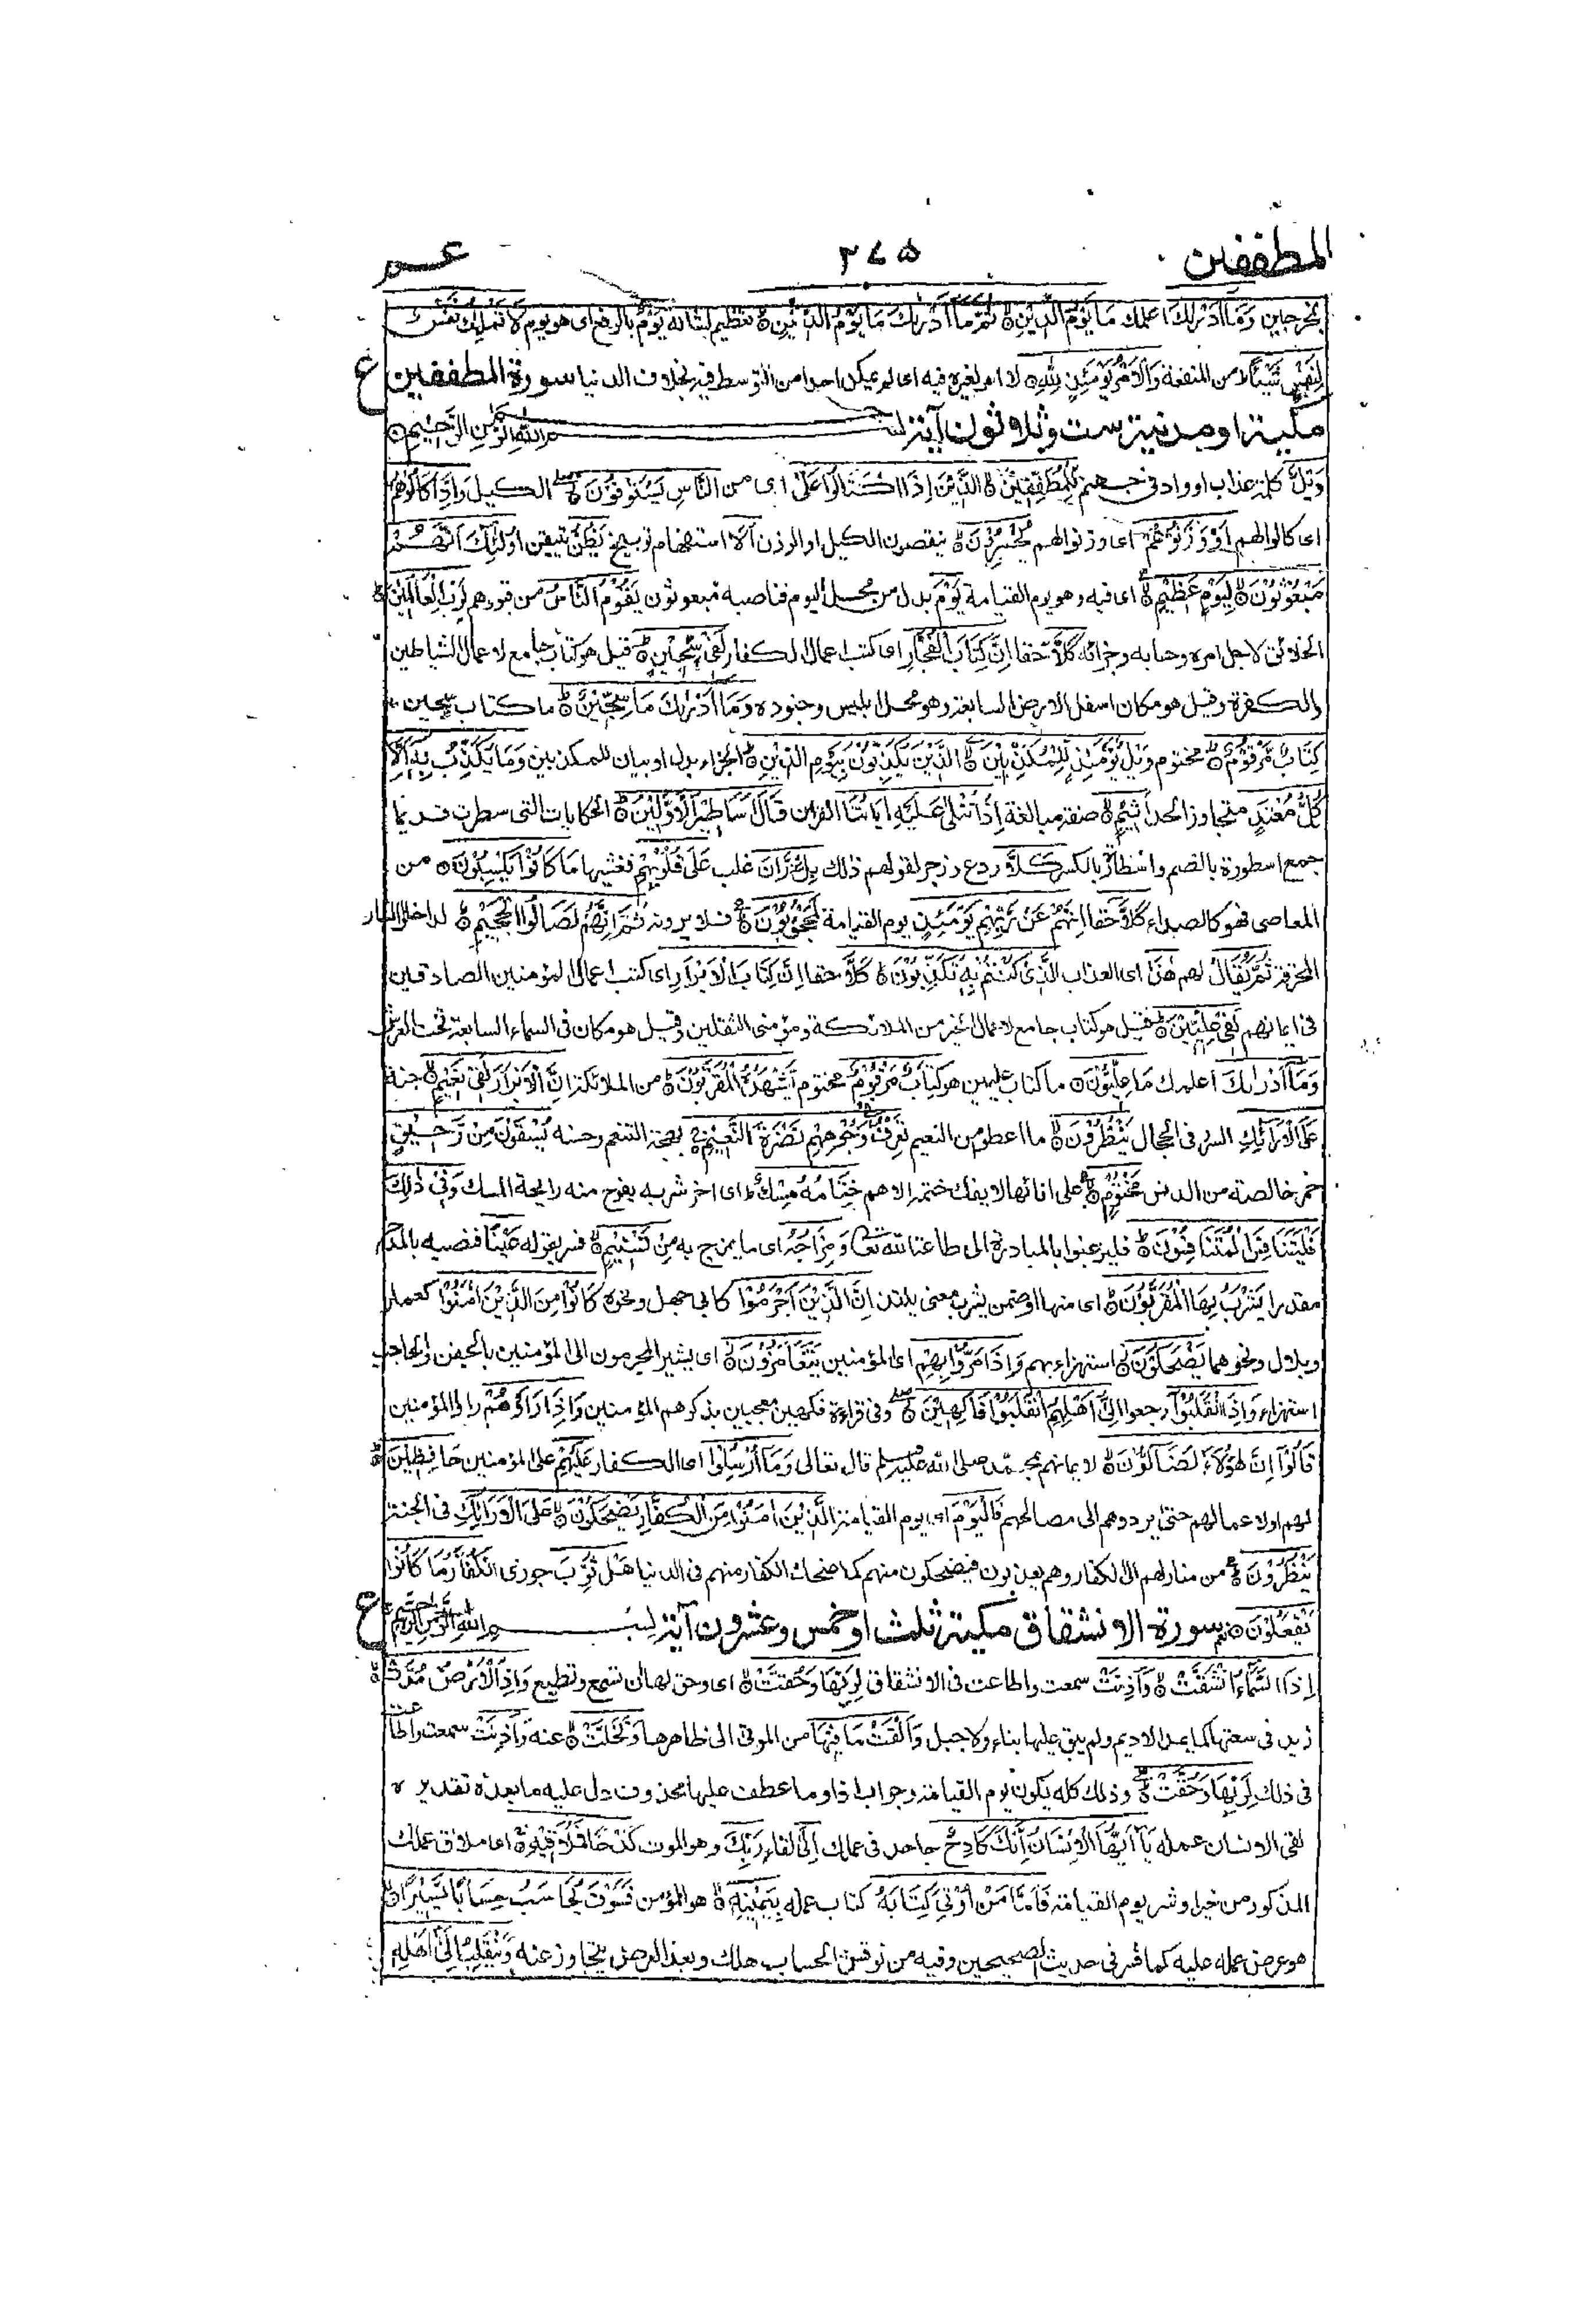 المطففين ٢٧٥ عم
بخرجين وَمَا أَدْرٰىكَ اعلمك مَا يَوْمُ الدِّيْنِ ثُمَّ مَا أَدْرٰىكَ مَا يَوْمُ الدِّيْنِ تعظيم لشانه يَوْمُ بالرفع اى هو يوم لَا تَمْلِكُ نَفْسٌ
لِنَفْسٍ شَيْئًا من المنفعة وَالْاَمْرُ يَوْمَئِذٍ لِلّٰهِ لا امر لغيره فيه اى لم يمكن احدا من التوسط فيه بخلاف الدنيا سورة المطففين
مكية او مدنية ست وثلاثون آية بسم الله الرحمن الرحيم
وَيْلٌ كلمة عذاب او واد فى جهنم لِلْمُطَفِّفِيْنَ الَّذِيْنَ اِذَا اكْتَالُوْا عَلَى اى من النَّاسِ يَسْتَوْفُوْنَ الكيل وَاِذَا كَالُوْهُمْ
اى كالوا لهم اَوْ وَّزَنُوْهُمْ اى وزنوا لهم يُخْسِرُوْنَ ينقصون الكيل او الوزن اَلَا استفهام توبيخ يَظُنُّ يتيقن اُولٰئِكَ اَنَّهُمْ
مَّبْعُوْثُوْنَ لِيَوْمٍ عَظِيْمٍ اى فيه وهو يوم القيامة يَوْمَ بدل من محل ليوم فناصبه مبعوثون يَقُوْمُ النَّاسُ من قبورهم لِرَبِّ الْعَالَمِيْنَ
الخلائق لاجل امره وحسابه وجزائه كَلَّا حقا اِنَّ كِتَابَ الْفُجَّارِ اى كتب اعمال الكفار لَفِىْ سِجِّيْنٍ قيل هو كتاب جامع لاعمال الشياطين
والكفرة وقيل هو مكان اسفل الارض السابعة وهو محل ابليس وجنوده وَمَا اَدْرٰىكَ مَا سِجِّيْنٌ ما كتاب سجين
كِتَابٌ مَّرْقُوْمٌ مختوم وَيْلٌ يَّوْمَئِذٍ لِّلْمُكَذِّبِيْنَ الَّذِيْنَ يُكَذِّبُوْنَ بِيَوْمِ الدِّيْنِ الجزاء بدل او بيان للمكذبين وَمَا يُكَذِّبُ بِهٖ اِلَّا
كُلُّ مُعْتَدٍ متجاوز الحد اَثِيْمٍ صفة مبالغة اِذَا تُتْلٰى عَلَيْهِ اٰيَاتُنَا القران قَالَ اَسَاطِيْرُ الْاَوَّلِيْنَ الحكايات التى سطرت قديما
جمع اسطورة بالضم واسطارة بالكسر كَلَّا ردع وزجر لقولهم ذلك بَلْ رَانَ غلب عَلٰى قُلُوْبِهِمْ فغشيها مَا كَانُوْا يَكْسِبُوْنَ من
المعاصى فهو كالصداء كَلَّا حقا اِنَّهُمْ عَنْ رَّبِّهِمْ يَوْمَئِذٍ يوم القيامة لَّمَحْجُوْبُوْنَ فلا يرونه ثُمَّ اِنَّهُمْ لَصَالُوا الْجَحِيْمِ لداخلوا النار
المحرقة ثُمَّ يُقَالُ لهم هٰذَا اى العذاب الَّذِىْ كُنْتُمْ بِهٖ تُكَذِّبُوْنَ كَلَّا حقا اِنَّ كِتَابَ الْاَبْرَارِ اى كتب اعمال المؤمنين الصادقين
فى ايمانهم لَفِىْ عِلِّيِّيْنَ قيل هو كتاب جامع لاعمال الخير من الملائكة ومؤمنى الثقلين وقيل هو مكان فى السماء السابعة تحت العرش
وَمَا اَدْرٰىكَ اعلمك مَا عِلِّيُّوْنَ ما كتاب عليين هو كِتَابٌ مَّرْقُوْمٌ مختوم يَشْهَدُهُ الْمُقَرَّبُوْنَ من الملائكة اِنَّ الْاَبْرَارَ لَفِىْ نَعِيْمٍ جنة
عَلَى الْاَرَائِكِ السرر فى الحجال يَنْظُرُوْنَ ما اعطوا من النعيم تَعْرِفُ فِىْ وُجُوْهِهِمْ نَضْرَةَ النَّعِيْمِ بهجة التنعم وحسنه يُسْقَوْنَ مِنْ رَّحِيْقٍ
خمر خالصة من الدنس مَّخْتُوْمٍ على انائها لا يفك ختمه الا هم خِتَامُهٗ مِسْكٌ اى اخر شربه يفوح منه رايحة المسك وَفِىْ ذٰلِكَ
فَلْيَتَنَافَسِ الْمُتَنَافِسُوْنَ فليرغبوا بالمبادرة الى طاعة الله تعالى وَمِزَاجُهٗ اى ما يمزج به مِنْ تَسْنِيْمٍ فسر بقوله عَيْنًا فنصبه بامدح
مقدرا يَّشْرَبُ بِهَا الْمُقَرَّبُوْنَ اى منها او ضمن يشرب معنى يلتذ اِنَّ الَّذِيْنَ اَجْرَمُوْا كابى جهل ونحوه كَانُوْا مِنَ الَّذِيْنَ اٰمَنُوْا كعمار
وبلال ونحوهما يَضْحَكُوْنَ استهزاء بهم وَاِذَا مَرُّوْا بِهِمْ اى المؤمنين يَتَغَامَزُوْنَ اى يشير المجرمون الى المؤمنين بالجفن والحاجب
استهزاء وَاِذَا انْقَلَبُوْا رجعوا اِلٰى اَهْلِهِمُ انْقَلَبُوْا فَاكِهِيْنَ وفى قراءة فكهين معجبين بذكرهم المؤمنين وَاِذَا رَاَوْهُمْ راوا المؤمنين
قَالُوْا اِنَّ هٰؤُلَاءِ لَضَالُّوْنَ لايمانهم بمحمد صلى الله عليه وسلم قال تعالى وَمَا اُرْسِلُوْا اى الكفار عَلَيْهِمْ على المؤمنين حَافِظِيْنَ
لهم او لاعمالهم حتى يردوهم الى مصالحهم فَالْيَوْمَ اى يوم القيامة الَّذِيْنَ اٰمَنُوْا مِنَ الْكُفَّارِ يَضْحَكُوْنَ عَلَى الْاَرَائِكِ فى الجنة
يَنْظُرُوْنَ من منازلهم الى الكفار وهم يعذبون فيضحكون منهم كما ضحك الكفار منهم فى الدنيا هَلْ ثُوِّبَ جوزى الْكُفَّارُ مَا كَانُوْا
يَفْعَلُوْنَ نعم سورة الانشقاق مكية ثلث او خمس وعشرون آية بسم الله الرحمن الرحيم
اِذَا السَّمَاءُ انْشَقَّتْ وَاَذِنَتْ سمعت واطاعت فى الانشقاق لِرَبِّهَا وَحُقَّتْ اى وحق لها ان تسمع وتطيع وَاِذَا الْاَرْضُ مُدَّتْ
زيد فى سعتها كما يمد الاديم ولم يبق عليها بناء ولا جبل وَاَلْقَتْ مَا فِيْهَا من الموتى الى ظاهرها وَتَخَلَّتْ عنه وَاَذِنَتْ سمعت واطاعت
فى ذلك لِرَبِّهَا وَحُقَّتْ وذلك كله يكون يوم القيامة وجواب اذا وما عطف عليها محذوف دل عليه ما بعده تقديره
لقى الانسان عمله يَا اَيُّهَا الْاِنْسَانُ اِنَّكَ كَادِحٌ جاهد فى عملك اِلٰى لقاء رَبِّكَ وهو الموت كَدْحًا فَمُلَاقِيْهِ اى ملاق عملك
المذكور من خير او شر يوم القيامة فَاَمَّا مَنْ اُوْتِىَ كِتَابَهٗ كتاب عمله بِيَمِيْنِهٖ هو المؤمن فَسَوْفَ يُحَاسَبُ حِسَابًا يَّسِيْرًا
هو عرض عمله عليه كما فسر فى حديث الصحيحين وفيه من نوقش الحساب هلك وبعد العرض يتجاوز عنه وَيَنْقَلِبُ اِلٰى اَهْلِهٖ